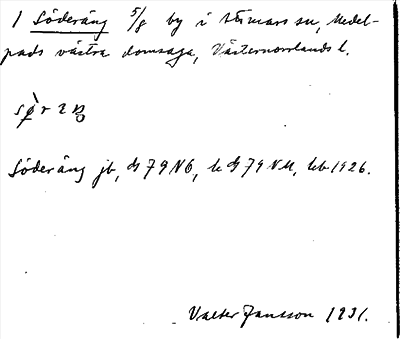 1 Söderäng 5/8 by i Stimars sn, Medel-
pads västra domsaga, Västernorrlands l.
Söderäng jb, ds 79 NÖ, ls ds 79 NV, kb 1926.
Valter Jansson 1931.